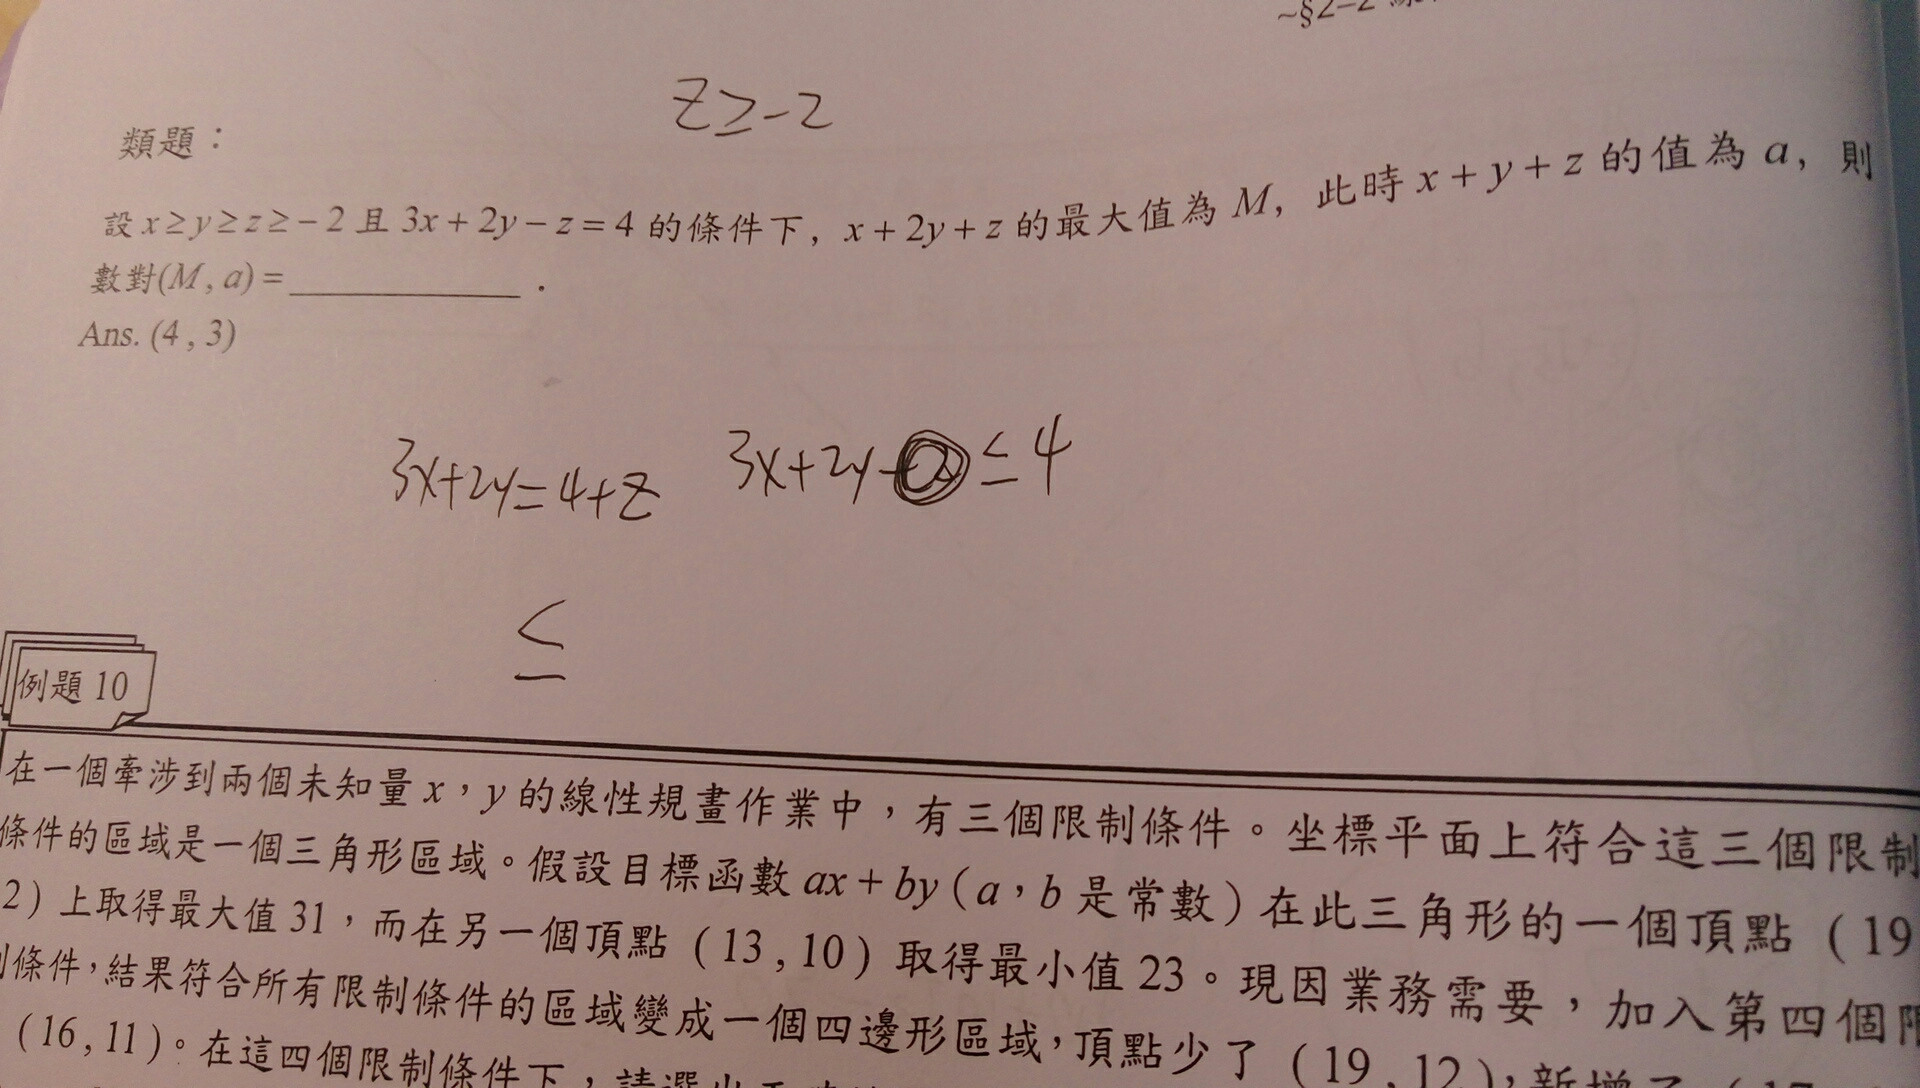 ~§2-2
z≥-2
類題：
設 x≥y≥z≥-2 且 3x+2y-z=4 的條件下，x+2y+z 的最大值為 M，此時 x+y+z 的值為 a，則
數對(M, a) = ____________ .
Ans. (4, 3)
3x+2y=4+z 3x+2y- ≤4
≤
例題 10
在一個牽涉到兩個未知量 x，y 的線性規畫作業中，有三個限制條件。坐標平面上符合這三個限制
條件的區域是一個三角形區域。假設目標函數 ax+by（a，b 是常數）在此三角形的一個頂點（19
2）上取得最大值 31，而在另一個頂點（13, 10）取得最小值 23。現因業務需要，加入第四個限
條件，結果符合所有限制條件的區域變成一個四邊形區域，頂點少了（19, 12），新增了（17
（16, 11）。在這四個限制條件下，請選出